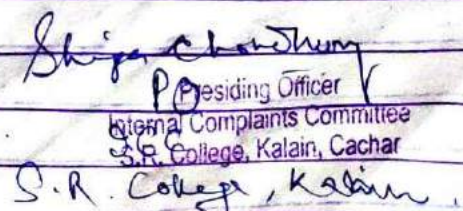 Shipa Chowdhury
PO
Presiding Officer
Internal Complaints Committee
S.R. College, Kalain, Cachar
S.R. College, Kalain.